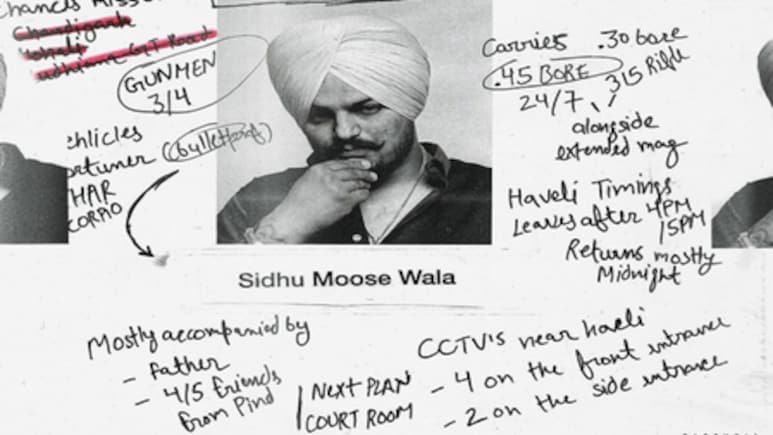 Chances Misse
Chandigarh
Mohali
udhiana G.T Road
GUNMEN
3/4
ehlicles
ortuner (bulletproof)
HAR
CORPIO
Carries .30 bore
.45 BORE 315 Rifle
24/7
alongside
extended mag
Haveli Timings
Leaves after 4PM
/5PM
Returns mostly
Midnight
Sidhu Moose Wala
Mostly accompanied by
- Father
- 4/5 friends
from Pind
NEXT PLAN
COURT ROOM
CCTV's near haveli
- 4 on the front entrance
- 2 on the side entrance